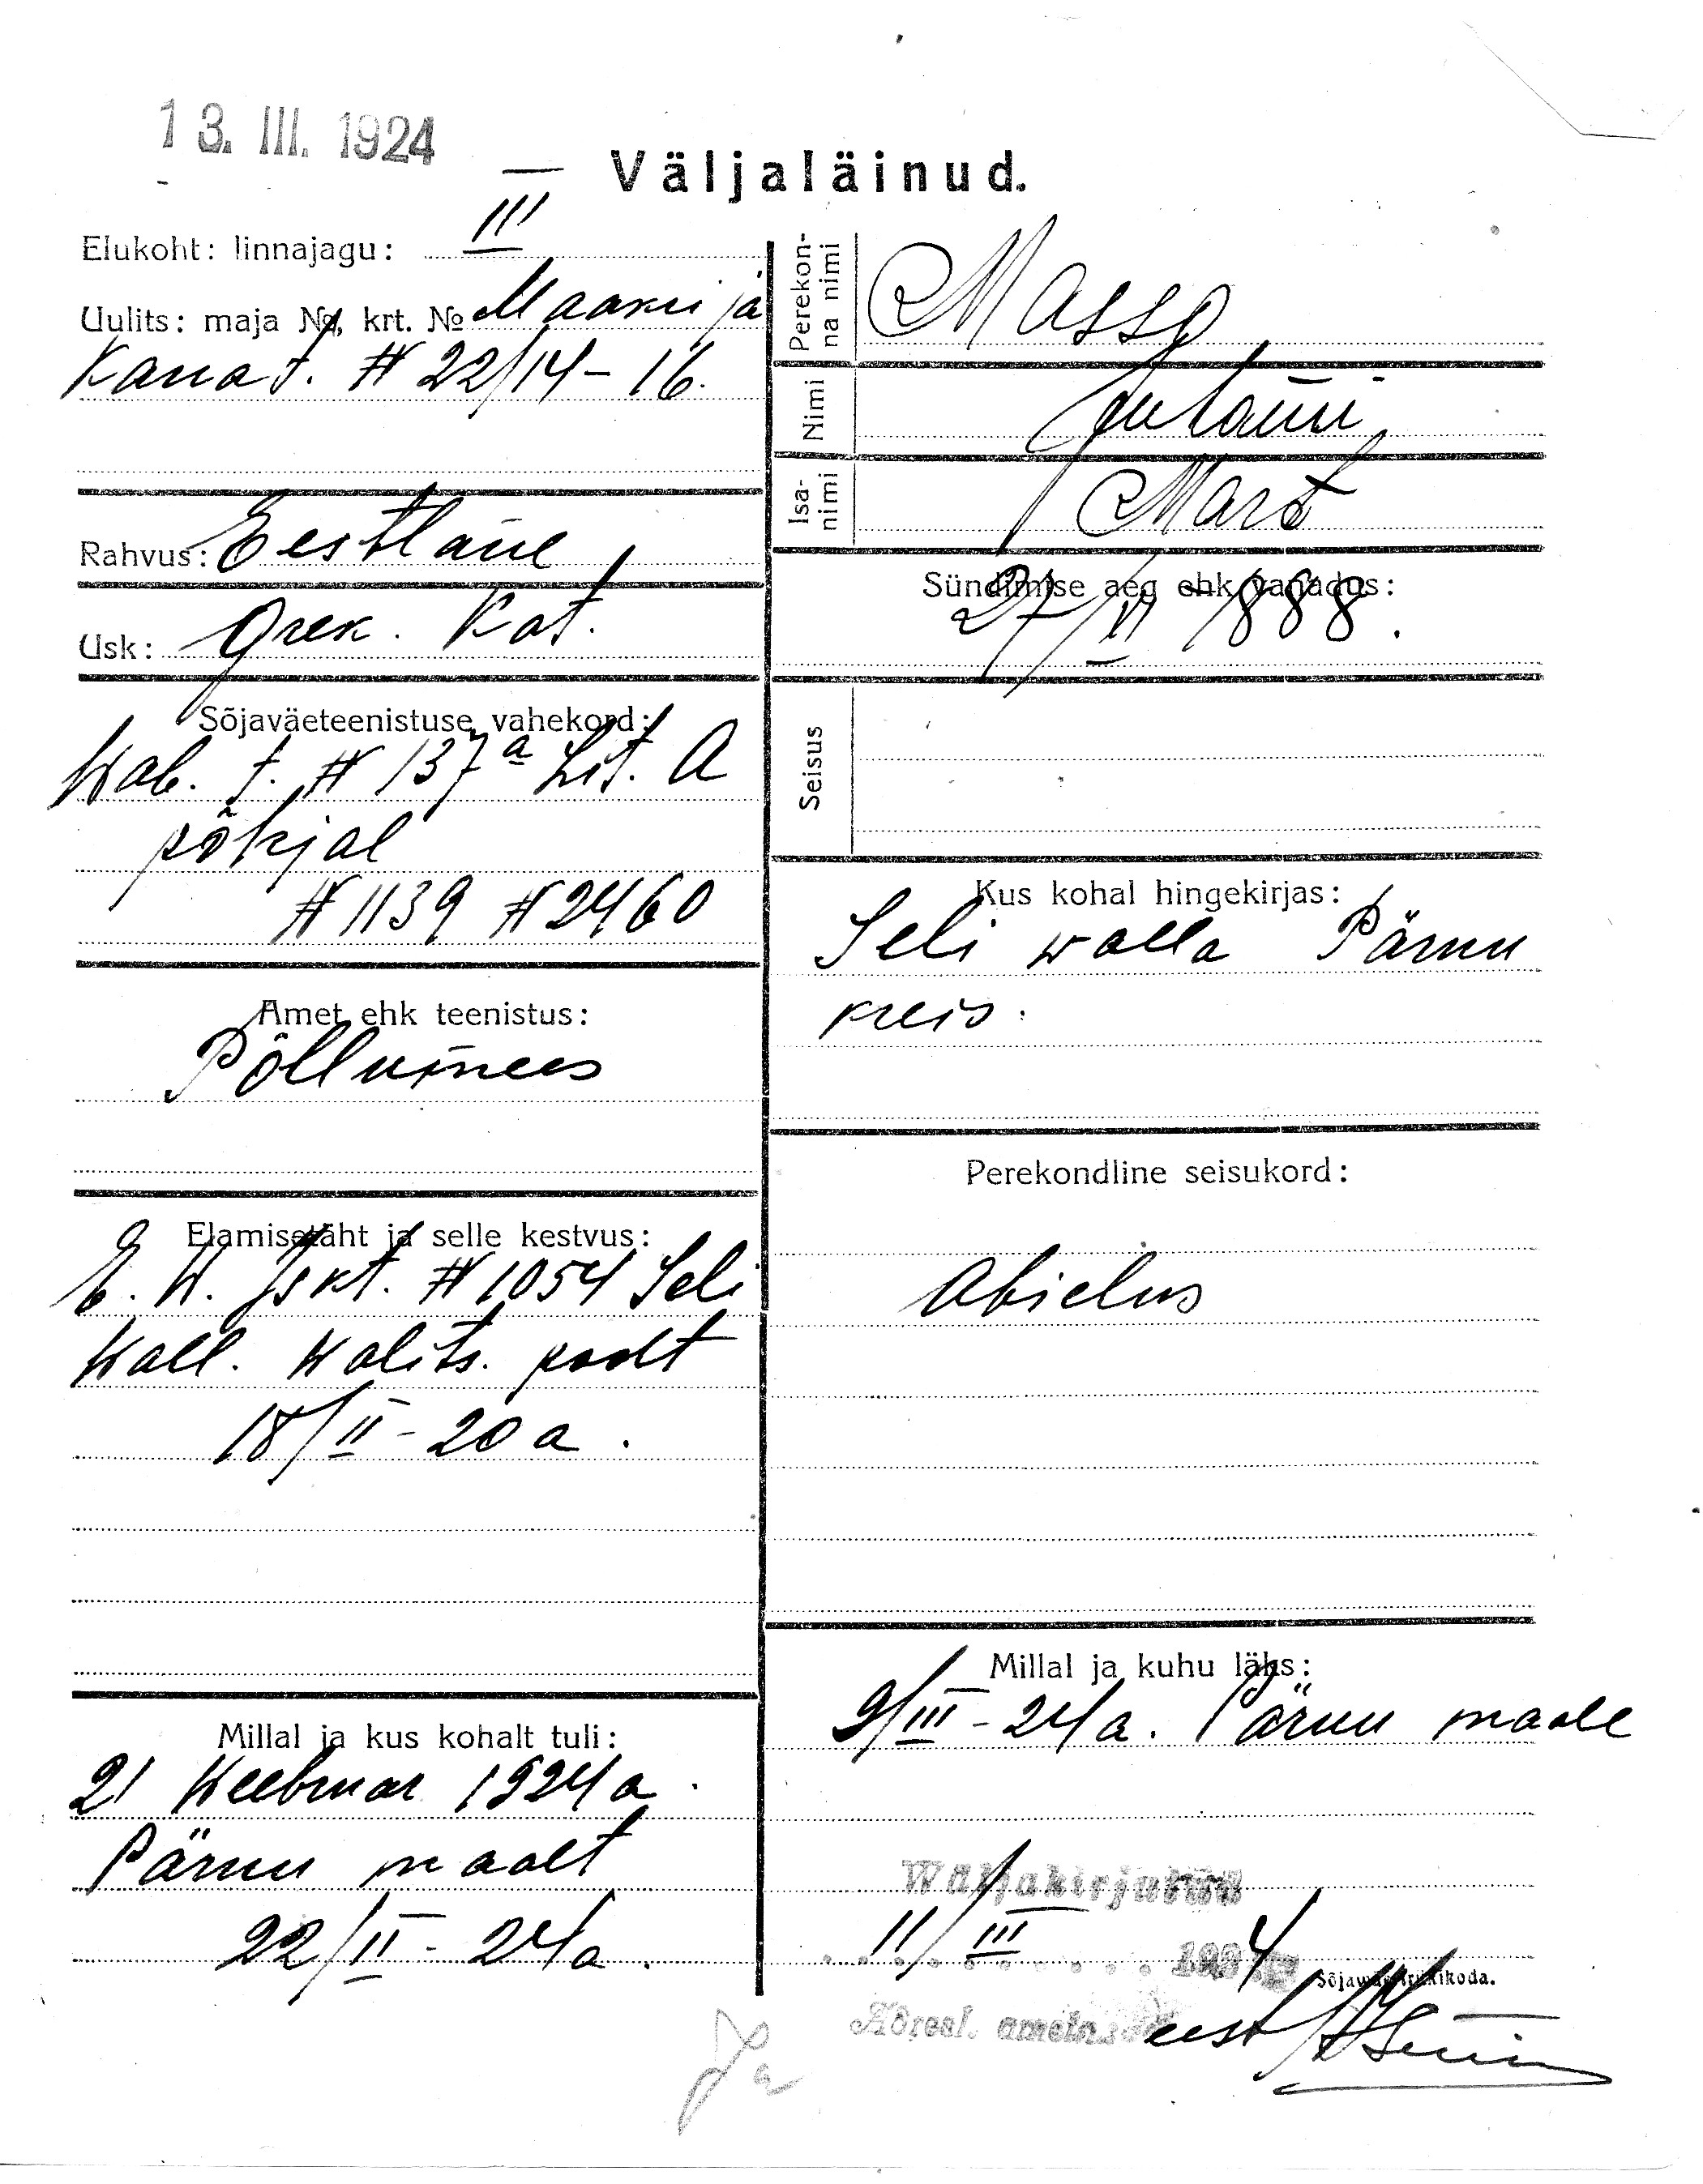 13. III. 1924
Väljaläinud.
Elukoht: linnajagu: III
Uulits: maja №, krt. № Maakri ja
Kana t. # 22/14-16.
Rahvus: Eestlane
Usk: Grek. Kat.
Sõjaväeteenistuse vahekord:
Wab. t. # 137a Lit. A
põhjal
# 1139 # 2460
Amet ehk teenistus:
Põllumees
Elamisetäht ja selle kestvus:
E. W. Iskt. # 1054 Seli
Wall. Walits. poolt
18/II-20 a.
Millal ja kus kohalt tuli:
21 Weebruar 1924 a.
Pärnu maalt
22/II-24 a.
Perekonna nimi Masso
Nimi
Isanimi Mart
Sündimise aeg ehk vanadus:
27/VI 1888.
Seisus
Kus kohal hingekirjas:
Seli walla Pärnu
kreis.
Perekondline seisukord:
Abielus
Millal ja kuhu läks:
9/III-24 a. Pärnu maale
Wäljakirjutud
11/III 1924
Sõjawäe trükikoda.
Adresl. ametn. eest
Ja